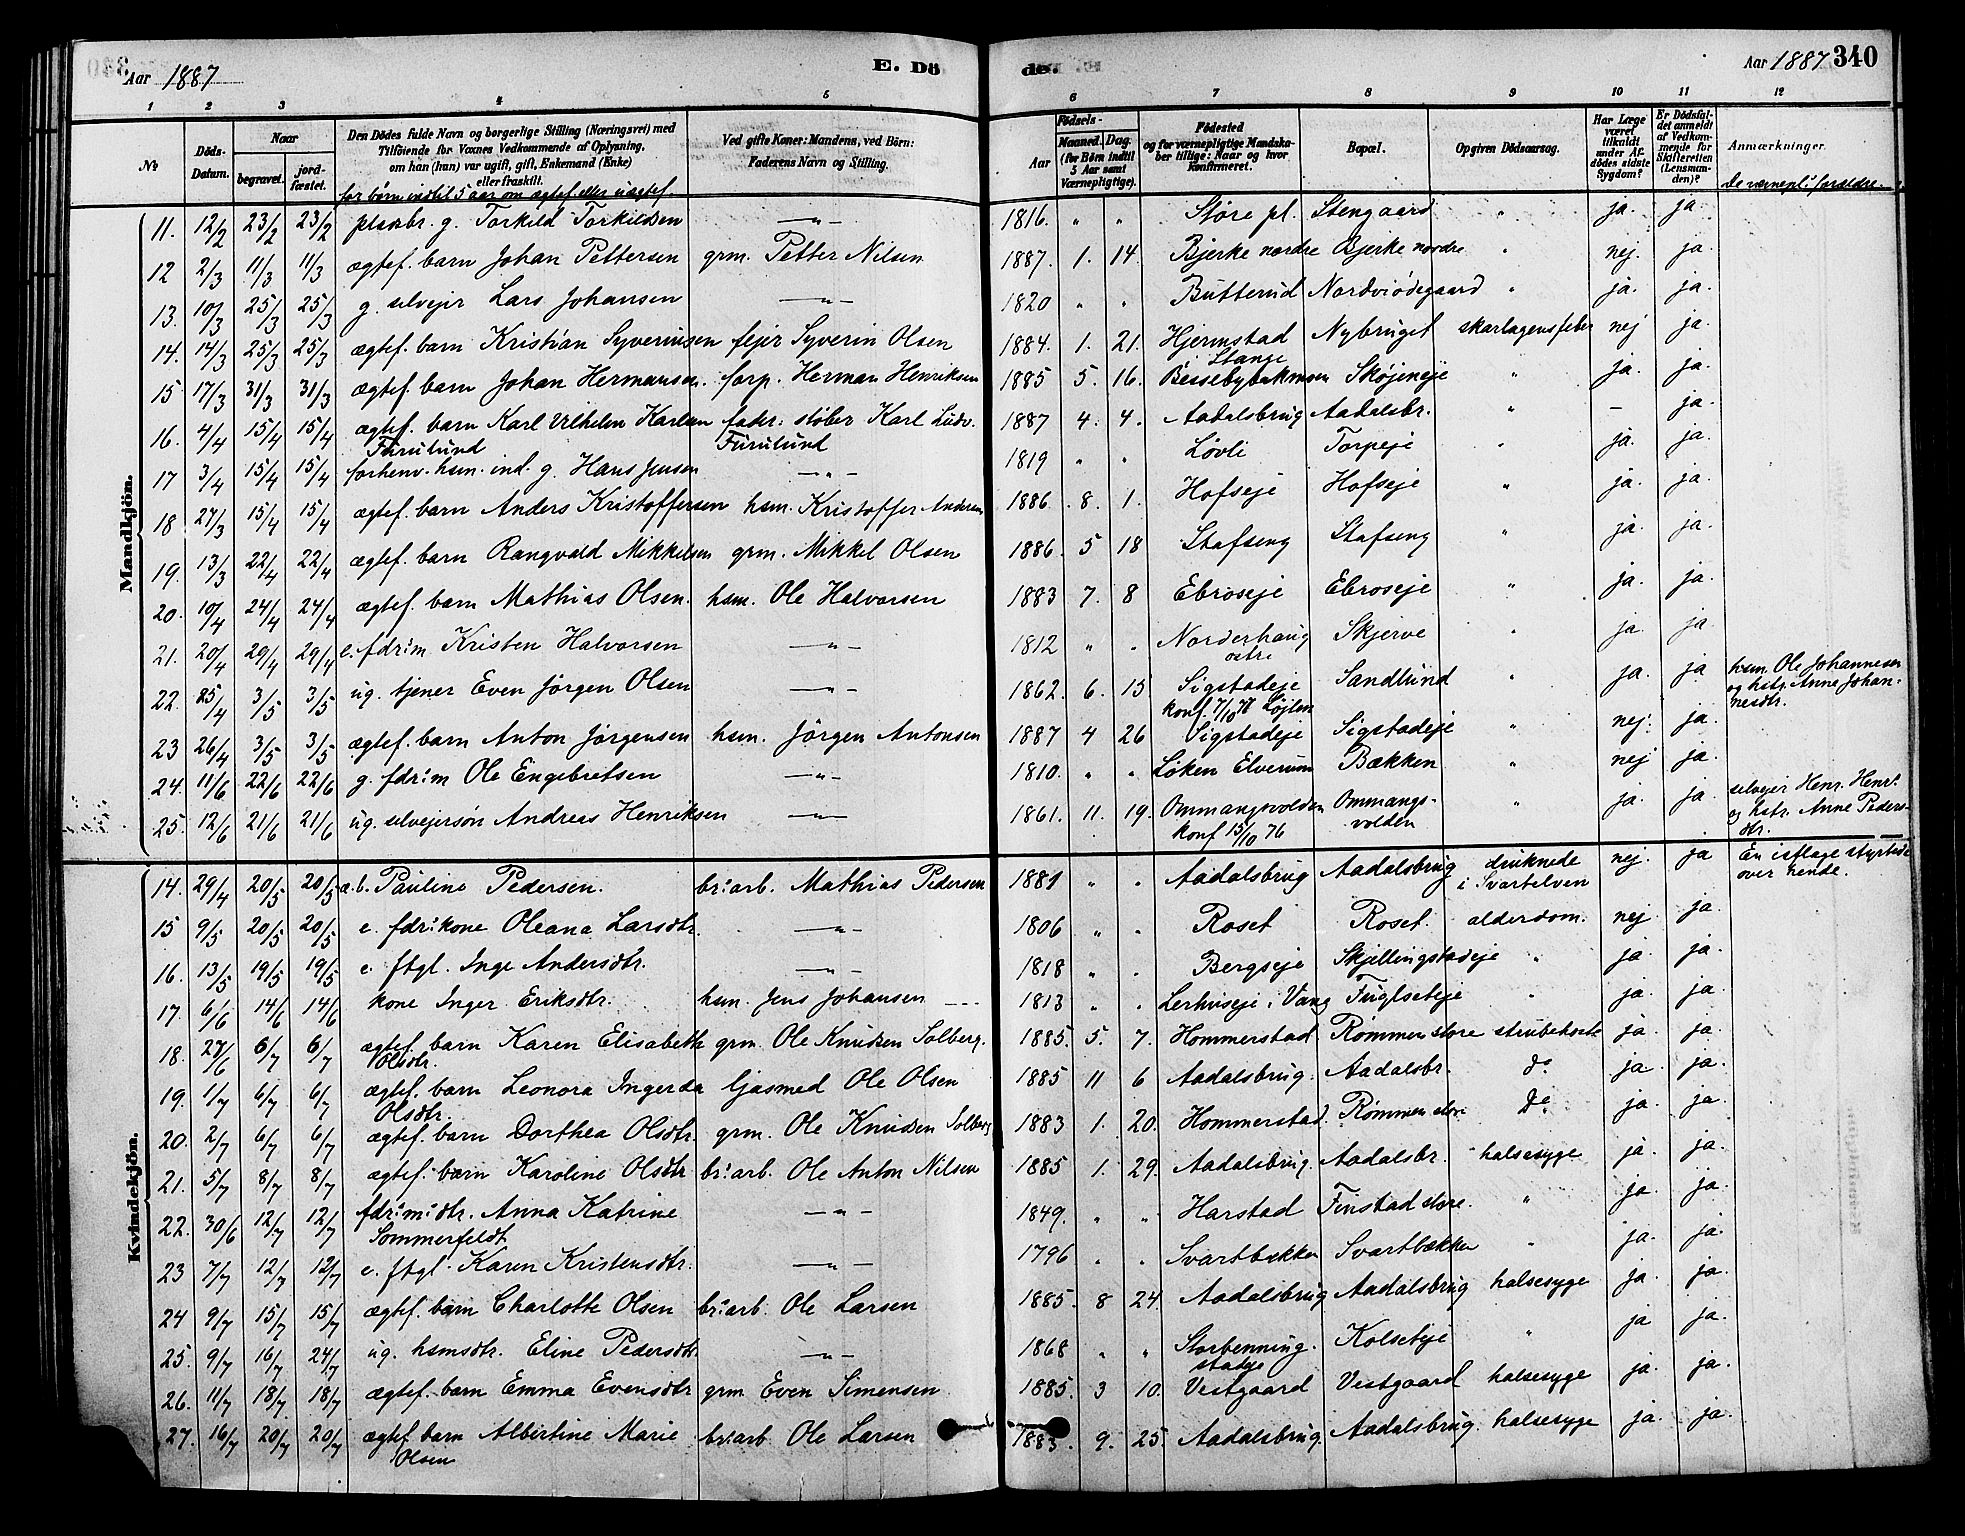 Aar 1887
E. Dö
de.
Aar 1887
340
1 2 3 4 5 6 7 8 9 10 11 12
No
Döds-Datum.
Naar
begravet.
jord-fæstet.
Den Dödes fulde Navn og borgerlige Stilling (Næringsvei) med
Tilföiende for Voxnes Vedkommende af Oplysning,
om han (han) var ugift, gift, Enkemand (Enke)
eller fraskilt.
for børn indtil 5 aar om ægtef. eller uægtef.
Ved gifte Koner: Mandens, ved Börn:
Faderens Navn og Stilling.
Födsels-
Aar
Maaned. Dag.
(for Börn indtil
5 Aar samt
Værnepligtige).
Födested
og for værnepligtige Mandska-
ber tillige: Naar og hvor
Konfirmeret.
Bopæl.
Opgiven Dödsaarsag.
Har Læge
været
tilkaldt
under Af-
dödes sidste
Sygdom?
Er Dödsfal-
det anmeldt
af Vedkom-
mende for
Skifteretten
(Lensman-
den)?
Anmærkninger.
de værnepl.' forældre.
Mandkjön.
11. 12/2 23/2 23/2 plasbr. g. Torkild Torkildsen —"— 1816. " " Støre pl. Stengaard " ja. ja
12 2/3 11/3 11/3 ægtef. barn Johan Pettersen grm. Petter Nilsen 1887. 1. 14. Bjerke nordre Bjerke nordre " nej. ja.
13. 10/3 25/3 25/3 g. selvejer Lars Johansen —"— 1820 " " Butterud Nordviødegaard " ja. ja.
14. 14/3 25/3 25/3 ægtef. barn Kristian Syverinsen fejer Syverin Olsen 1884. 1. 21. Hjermstad Nybruget skarlagensfeber nej ja.
15 17/3 31/3 31/3 ægtef. barn Johan Hermansen. forp. Herman Henriksen 1885 5. 16. Stange Bessebybakmoen Skøjeneje " ja. ja.
16. 4/4 15/4 15/4 ægtef. barn Karl Vilhelm Karlsen fader: støber Karl Ludv. 1887 4. 4. Aadalsbrug Aadalsbr. " – ja.
Furulund Furulund
17 3/4 15/4 15/4 forhenv. hsm. ind. g. Hans Jensen —"— 1819 " " Løvli Torpeje ja. ja.
18 27/3 15/4 15/4 ægtef. barn Anders Kristoffersen hsm. Kristoffer Andersen 1886. 8. 1. Hofseje Hofseje " ja. ja.
19. 13/3 22/4 22/4 ægtef. barn Rangvald Mikkelsen grm. Mikkel Olsen 1886. 5 18 Stafseng Stafseng " ja. ja.
20. 10/4 24/4 24/4 ægtef. barn Mathias Olsen. hsm. Ole Halvorsen 1883 7. 8 Ebroseje Ebroseje " ja. ja.
21. 20/4 29/4 29/4 e. fdr:m Kristen Halvorsen —"— 1812 " " Norderhaug østre Skjerve " ja. ja.
22. 25/4 3/5 3/5 ug. tjener Even Jörgen Olsen —"— 1862. 6. 15 Sigstadeje Sandlund " ja. ja hsm. Ole Johannesen
konf. 7/10 78 Løjten og hstr. Anne Johan-
nesdtr.
23 26/4 3/5 3/5 ægtef. barn Anton Jørgensen hsm. Jörgen Antonsen 1887 4 26 Sigstadeje Sigstadeje " nej. ja.
24. 11/6 22/6 22/6 g. fdr:m Ole Engebretsen —"— 1810. " " Løken Elverum Bækken " nej ja.
25. 12/6 21/6 21/6 ug. selvejersøn Andreas Henriksen —"— 1861. 11. 19. Ommangsvolden Ommangs-volden " ja. ja selvejer Henr. Henr.
konf 15/10 76 og hstr. Anne Peders-
dtr.
Kvindekjön.
14. 29/4 20/5 20/5 æ.b. Pauline Pedersen. br:arb. Mathias Pedersen 1881 " " Aadalsbrug Aadalsbrug druknede i Svartelven nej. ja En isflage styrtede
over hende.
15 9/5 20/5 20/5 e. fdr:kone Oleana Larsdtr. —"— 1806 " " Roset Roset. alderdom. nej ja.
16. 13/5 19/5 19/5 e. ftgl. Inge Andersdtr. —"— 1818 " " Bergseje Skjellingstadeje " ja. ja.
17 6/6 14/6 14/6 kone Inger Eriksdtr. hsm. Jens Johansen 1813 " " Lerhuseje i Vang Fuglseteje " ja. ja.
18. 27/6 6/7 6/7 ægtef. barn Karen Elisabeth grm. Ole Knudsen Solberg. 1885. 5. 7. Hommerstad. Rømmen store strubehoste ja. ja.
Olsdtr.
19. 1/7 6/7 6/7 ægtef. barn Leonora Ingerda Gjasmed Ole Olsen 1885 11 6 Aadalsbrug. Aadalsbr. do ja. ja.
Olsdtr.
20. 2/7 6/7 6/7 ægtef. barn Dorthea Olsdtr. grm. Ole Knudsen Solberg 1883 1. 20. Hommerstad. Rømmen store do ja. ja.
21. 5/7 8/7 8/7 ægtef. barn Karoline Olsdtr br:arb. Ole Anton Nilsen 1885 1. 29. Aadalsbrug. Aadalsbr. halsesyge ja. ja.
22. 30/6 12/7 12/7 fdr:m:dtr. Anna Katrine —"— 1849. " " Harstad Finstad store. " ja. ja.
Sommerfeldt
23 7/7 12/7 12/7 e. ftgl. Karen Kristensdtr. —"— 1796 " " Svartbækken Svartbækken " ja. ja.
24 9/7 15/7 15/7 ægtef. barn Charlotte Olsen br:arb. Ole Larsen 1885. 8 24. Aadalsbrug Aadalsbrug halsesyge ja. ja.
25. 9/7 16/7 24/7 ug. hsmsdtr. Eline Pedersdtr. —"— 1868 " " Storbenning-stadeje Kolseteje " ja ja.
26. 11/7 18/7 18/7 ægtef. barn Emma Evensdtr grm Even Simensen 1885. 3 10. Vestgaard Vestgaard halsesyge ja. ja.
27. 16/7 20/7 20/7 ægtef. barn Albertine Marie br:arb Ole Larsen 1883. 9. 25. Aadalsbrug. Aadalsbrug. halsesyge ja. ja.
Olsen